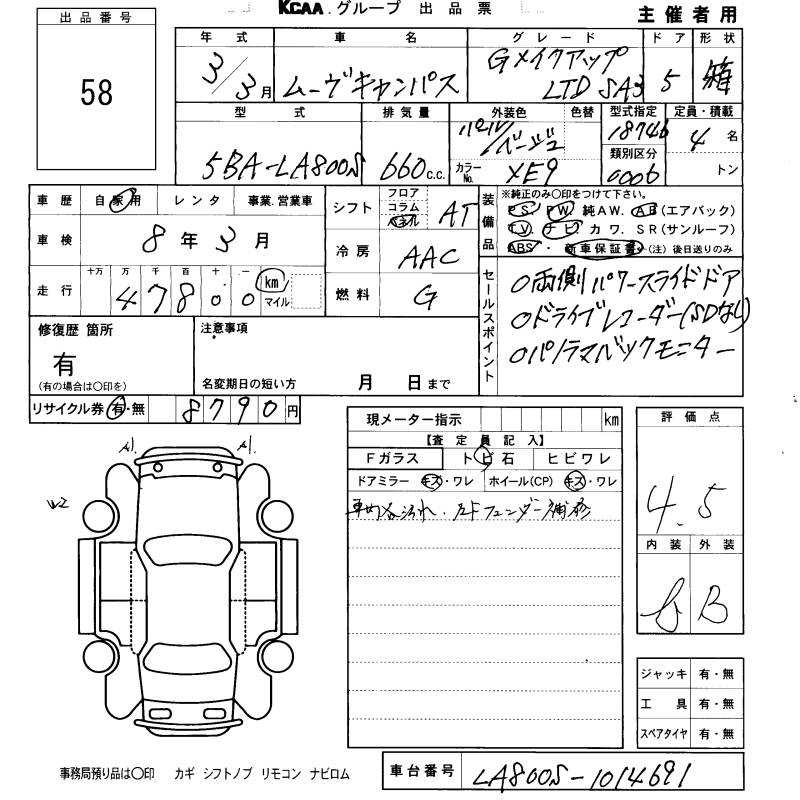 KCAA.グループ 出品票
主催者用
出品番号
58
年式 車名 グレード ドア 形状
3/3月 ムーヴキャンバス Gメイクアップ LTD SA3 5 箱
型式 排気量 外装色 色替 型式指定 定員・積載
5BA-LA800S 660c.c. パール/ベージュ 18746 4名
カラーNo. XE9 類別区分 0006 トン
車歴 自家用 レンタ 事業.営業車
車検 8年3月
走行 十万 万 千 百 十 一 km マイル
4 7 8 0 0
シフト フロア コラム パネル AT
冷房 AAC
燃料 G
装備品 ※純正のみ〇印をつけて下さい。
P S. PW. 純AW. AB(エアバック)
T V. ナビ. カワ. SR(サンルーフ)
ABS・新車保証書・(注)後日送りのみ
セールスポイント
〇両側パワースライドドア
〇ドライブレコーダー(SDなし)
〇パノラマバックモニター
修復歴箇所
有
(有の場合は〇印を)
注意事項
名変期日の短い方 月 日まで
リサイクル券 有・無 8790円
現メーター指示 km
【査定員記入】
Fガラス トビ石 ヒビワレ
ドアミラー キズ・ワレ ホイール(CP) キズ・ワレ
車内汚れ.左Fフェンダー補修
評価点
4.5
内装 外装
B
A1 A1
W2
ジャッキ 有・無
工具 有・無
スペアタイヤ 有・無
事務局預り品は〇印 カギ シフトノブ リモコン ナビロム
車台番号 LA800S-1014691